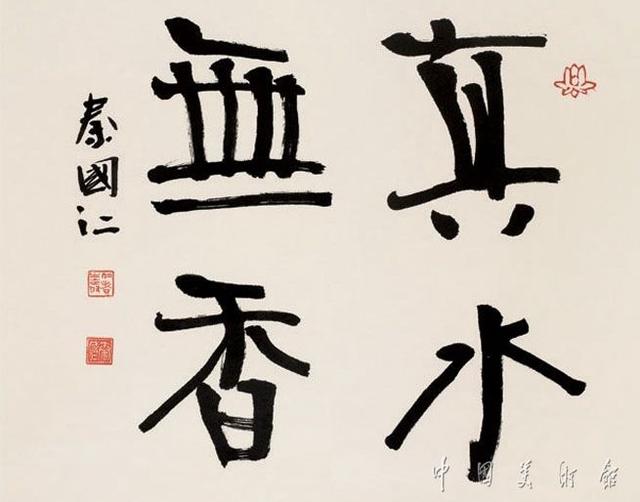 真水
無香
秦國仁
中国美術館